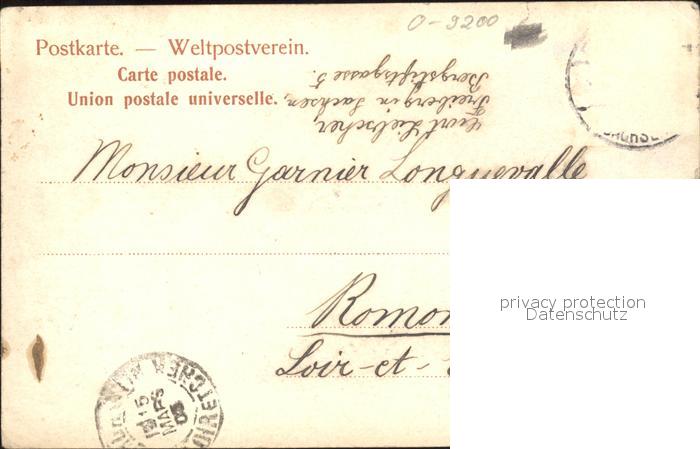 O-9200
Postkarte. — Weltpostverein.
Carte postale.
Union postale universelle.
Curt Liebscher,
Freiberg in Sachsen,
Bergstiftsgasse 5.
Monsieur Garnier Longuevalle
Romo
Loir-et-
privacy protection
Datenschutz
15
MARS
LOIR ET CHER